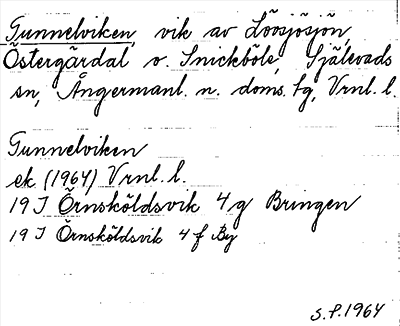 Tunnelviken, vik av Lövsjösjön,
Östergärdal o. Snickböle, Själevads
sn, Ångermanl. n. doms. tg, Vrnl. l.
Tunnelviken
ek (1964) Vrnl. l.
19 J Örnsköldsvik 4 g Bringen
19 J Örnsköldsvik 4 f By
S.P. 1964